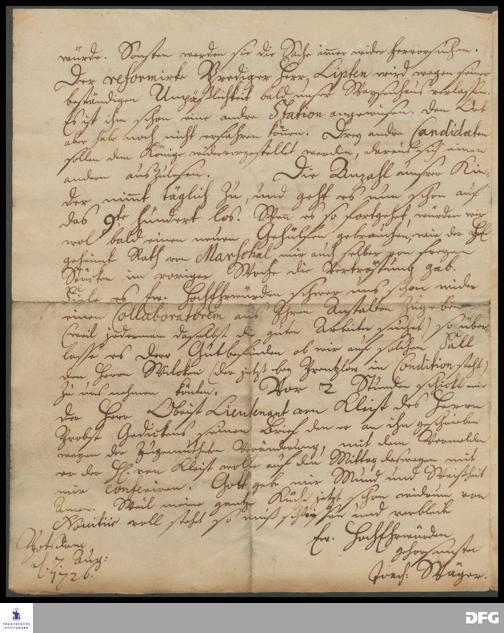 würde. Sonsten werden sie die Sache immer wider hervorsuchen.
Der reformirte Prediger Herr Lipten wird wegen seiner
beständigen Unpäßlichkeit bald unser Waysenhaus verlassen.
Es ist ihm schon eine andre Station angewiesen. den
aber habe noch nicht erfahren können. Drey andre Candidaten
sollen dem Könige vorgestellt werden, daraus sich einen
andern auszulesen. Die Anzahl unsrer Kin-
der nimmt täglich zu, und geht es nun schon auf
das 9te hundert los. Wenn es so fortgeht, werden wir
wol bald einen neuen Gehülfen gebrauchen, wie der H.
geheimt Rath von Marschal mir auch selber von freyen
Stücken in voriger Woche die Vertröstung gab.
Solte es Ew. Hochehrwürden schwer seyn schon wider
einen Collaboratorem aus Ihren Anstalten zu geben
(weil jederman daselbst die guten Arbeiter suchet) so über
lasse es Dero Gutbefinden ob wir auf solchen Fall
den Herrn (der jetzt bey Prentzlow in Condition steht)
zu uns nehmen könten. Vor 2 Stunden schickte mir
der Herr Obrist Lieutenant von Kleist des Herrn
Probst Gedickens seinen Brief den er an ihn geschrieben
wegen der Veränderung, mit dem Vermelden
er der H. von Kleist wolle auf den Mittag deswegen mit
mir conferiren. Gott gebe mir Mund und Weisheit
Amen. Weil meine gantze Küche jetzt schon widerum von
Novitiis voll steht so muß schließen und verbleibe
Ew. Hochehrwürden
Potsdam gehorsamster
d. 7. Aug:
1726.